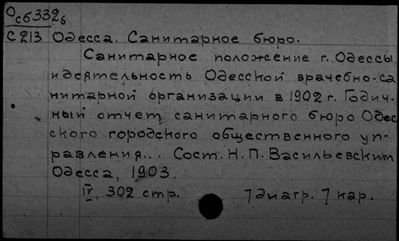 Осб332б
С213 Одесса. Санитарное бюро.
Санитарное положение г. Одессы
и деятельность Одесской врачебно-са
нитарной организации в 1902 г. Годич-
ный отчет санитарного бюро Одес
ского городского общественного уп-
равления... Сост. Н. П. Васильевским
Одесса, 1903.
IV, 302 стр. 7 диагр. 7 кар.